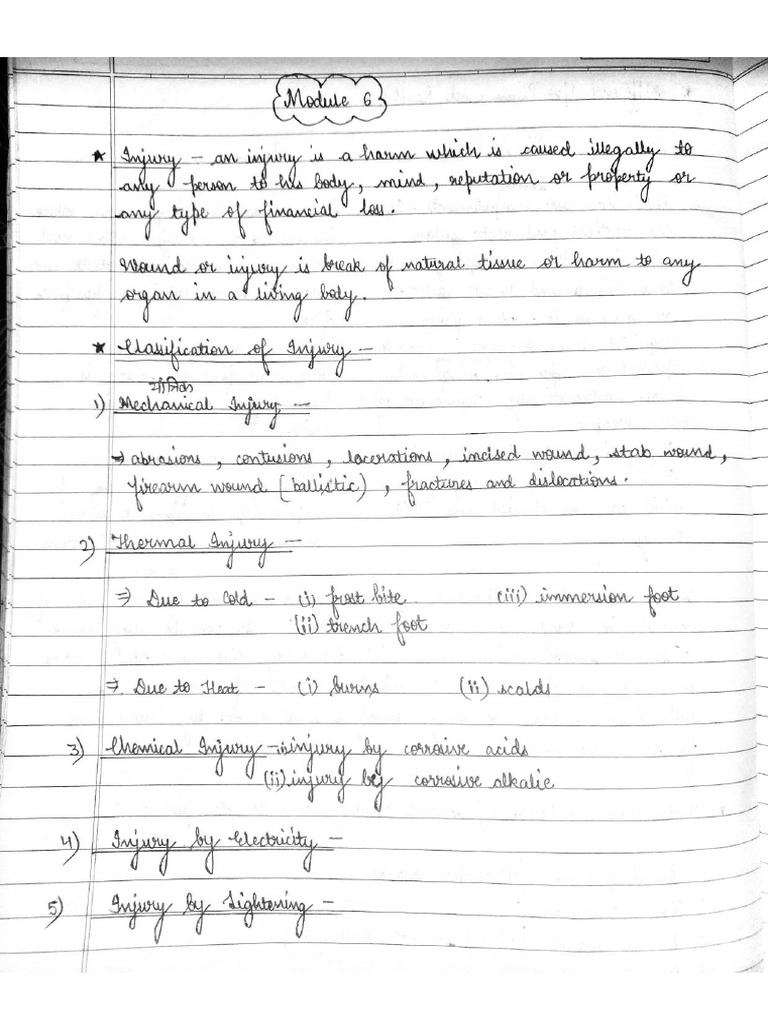 Module 6
★ Injury – an injury is a harm which is caused illegally to
any person to his body, mind, reputation or property or
any type of financial loss.
Wound or injury is break of natural tissue or harm to any
organ in a living body.
★ Classification of Injury –
यांत्रिक
1) Mechanical Injury –
→ abrasions, contusions, lacerations, incised wound, stab wound,
firearm wound (ballistic), fractures and dislocations.
2) Thermal Injury –
⇒ Due to Cold – (i) frost bite (iii) immersion foot
(ii) trench foot
⇒ Due to Heat – (i) burns (ii) scalds
3) Chemical Injury – (i) injury by corrosive acids
(ii) injury by corrosive alkalie
4) Injury by Electricity –
5) Injury by Lightening –